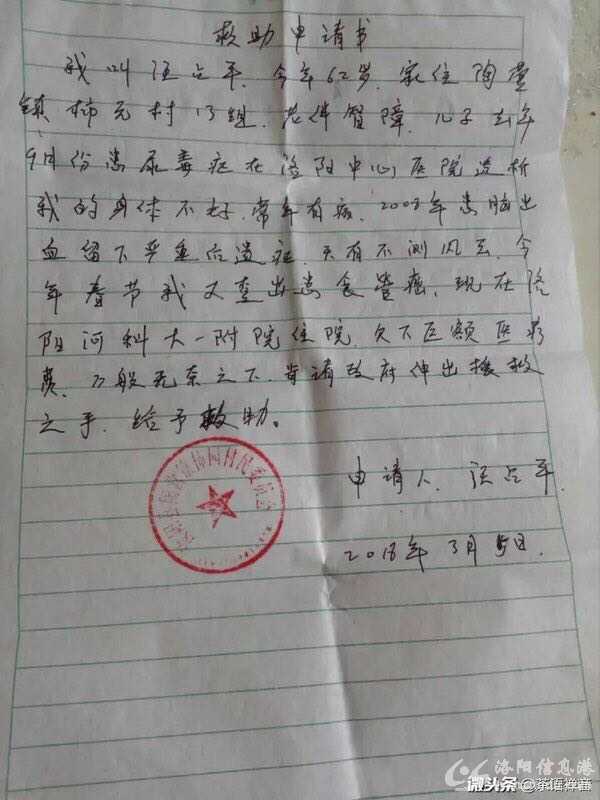 救助申请书
我叫汪占平,今年62岁,家住陶营
镇柿元村13组,老伴智障,儿子去年
9月份患尿毒症在洛阳中心医院透析
我的身体不好,常年有病,2008年患脑出
血留下严重后遗症,天有不测风云,今
年春节我又查出患食管癌,现在洛
阳河科大一附院住院,欠下巨额医疗
费,万般无奈之下,肯请政府伸出援救
之手,给予救助。
申请人 汪占平
2018年3月5日
洛阳信息港
微头条@茶语禅意